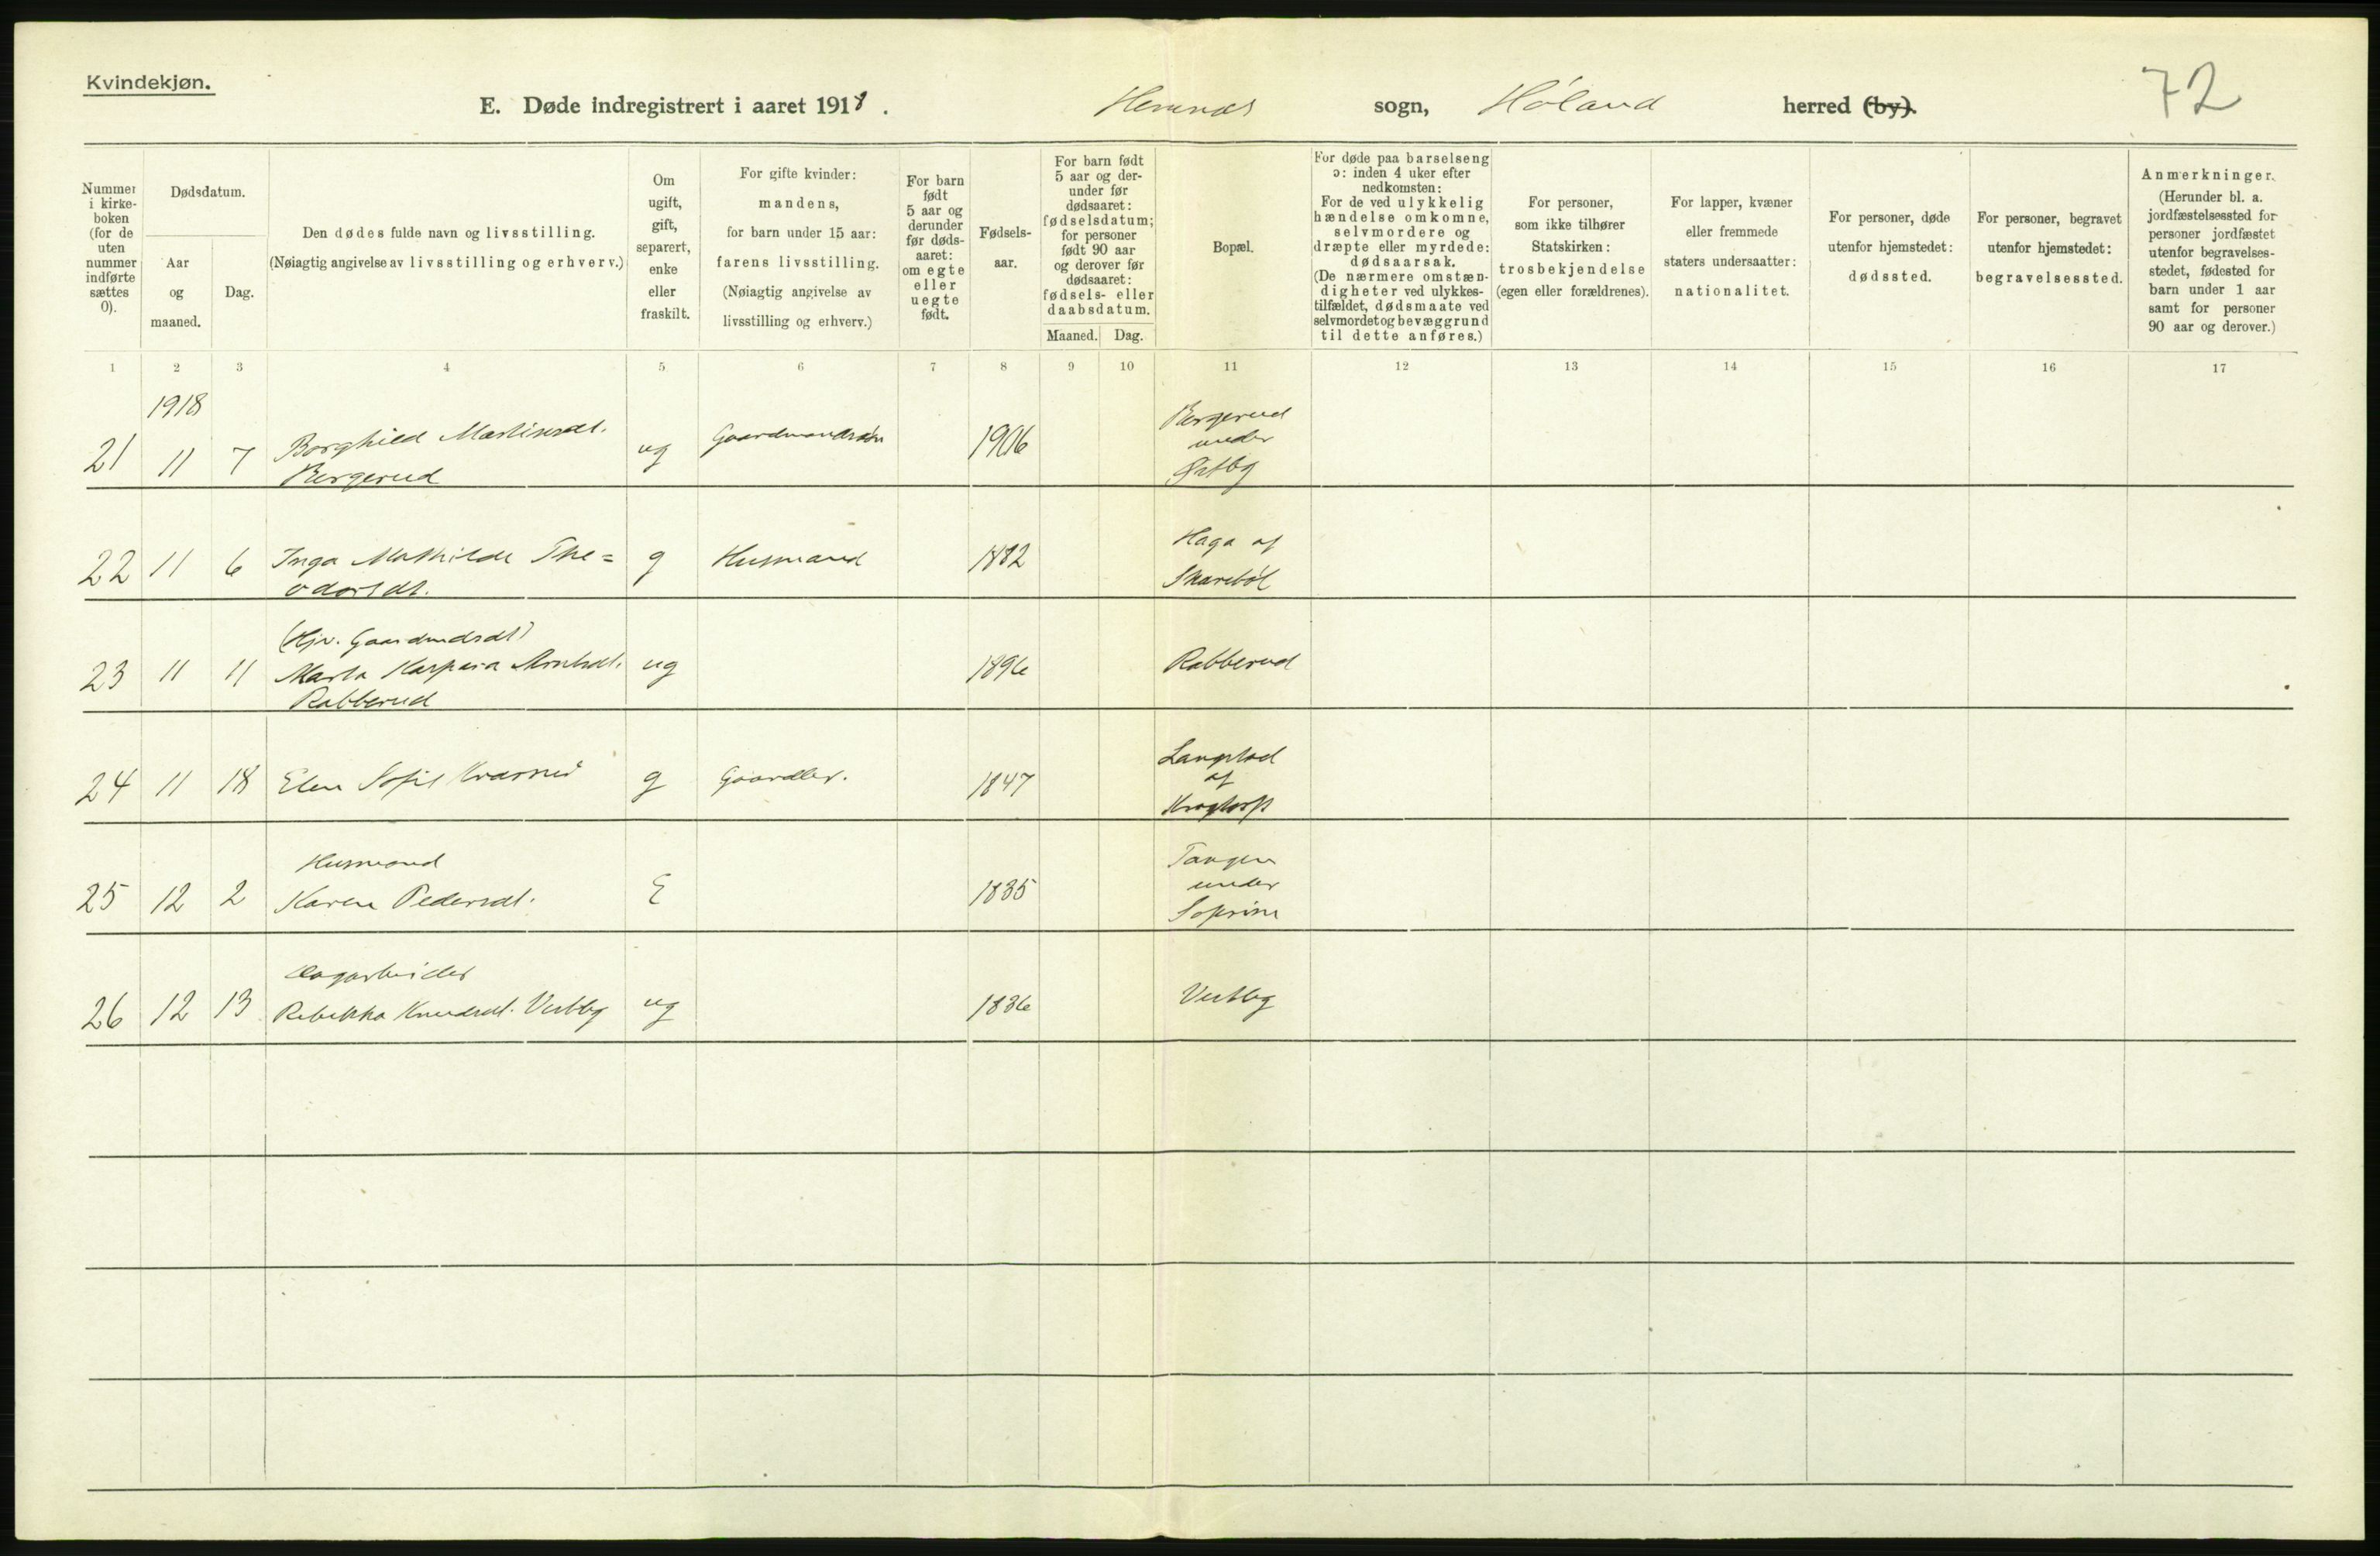 Kvindekjøn.
E. Døde indregistrert i aaret 1918.
Hemnæs sogn, Høland herred (by).
72
Nummer i kirkeboken (for de uten nummer indførte sættes 0).
Dødsdatum.
Aar og maaned.
Dag.
Den dødes fulde navn og livsstilling.
(Nøiagtig angivelse av livsstilling og erhverv.)
Om ugift, gift, separert, enke eller fraskilt.
For gifte kvinder: mandens, for barn under 15 aar: farens livsstilling. (Nøiagtig angivelse av livsstilling og erhverv.)
For barn født 5 aar og derunder før dødsaaret: om egte eller uegte født.
Fødselsaar.
For barn født 5 aar og derunder før dødsaaret: fødselsdatum; for personer født 90 aar og derover før dødsaaret: fødsels- eller daabsdatum.
Maaned. Dag.
Bopæl.
For døde paa barselseng ɔ: inden 4 uker efter nedkomsten: For de ved ulykkelig hændelse omkomne, selvmordere og dræpte eller myrdede: dødsaarsak. (De nærmere omstændigheter ved ulykkestilfældet, dødsmaate ved selvmordet og bevæggrund til dette anføres.)
For personer, som ikke tilhører Statskirken: trosbekjendelse (egen eller forældrenes).
For lapper, kvæner eller fremmede staters undersaatter: nationalitet.
For personer, døde utenfor hjemstedet: dødssted.
For personer, begravet utenfor hjemstedet: begravelsessted.
Anmerkninger. (Herunder bl. a. jordfæstelsessted for personer jordfæstet utenfor begravelsesstedet, fødested for barn under 1 aar samt for personer 90 aar og derover.)
1 2 3 4 5 6 7 8 9 10 11 12 13 14 15 16 17
1918
21 11 7 Borghild Martinsdt. Bergerud ug 1906 Bergerud under Østby
22 11 6 Inga Mathilde The= odorsdt. g Husmand 1882 Haga af Skarebøl
23 11 11 (Hjv. Gaardmdsdt) Marta Kaspara Rabberud ug 1896 Rabberud
24 11 18 Elen Sofie g Gaardbr. 1847 Langstad af Krogtorp
25 12 2 Husmand Karen Pedersdt. E 1835 Tangen under
26 12 13 Dagarbeider Rebekka Knudsdt. Vestby ug 1836 Vestby